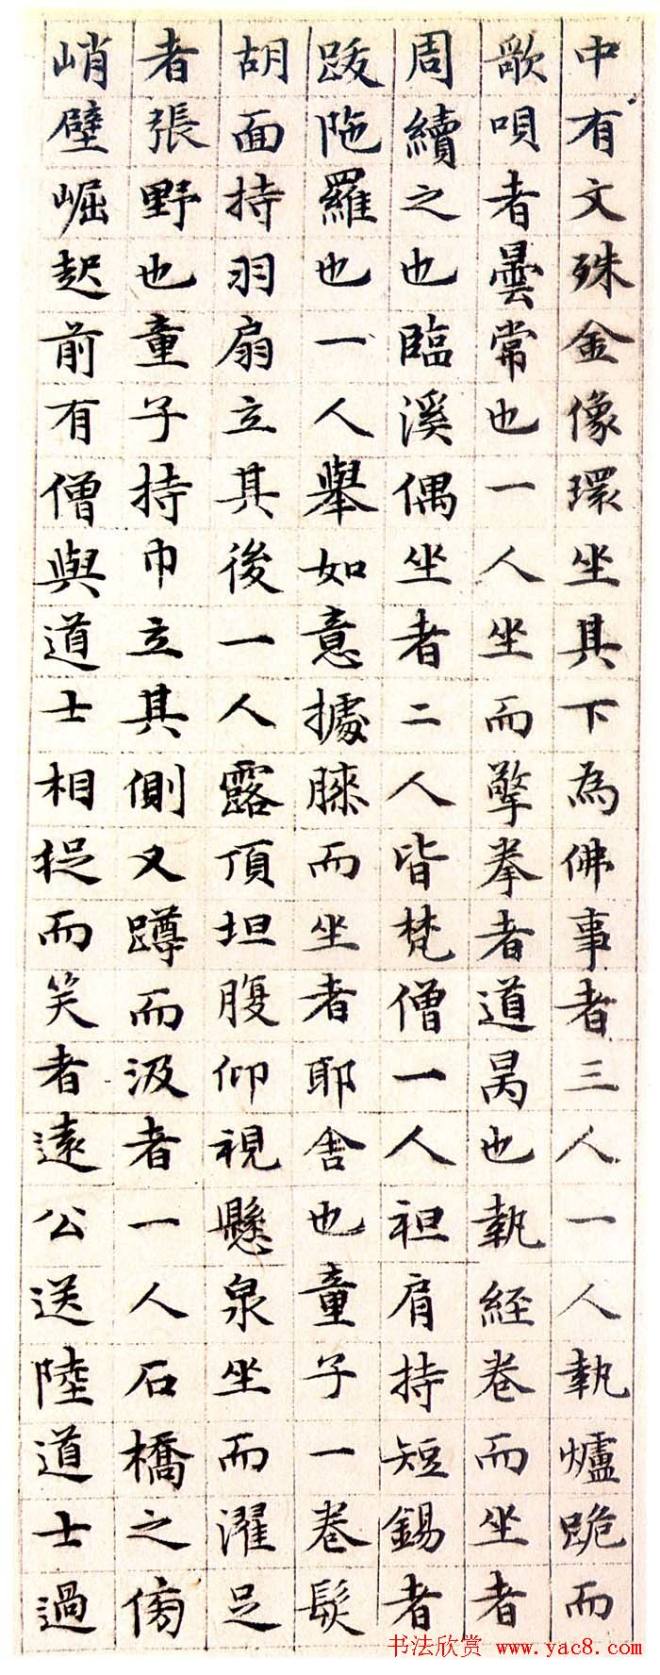 中有文殊金像環坐其下為佛事者三人一人執爐跪而
歌唄者曇常也一人坐而擎拳者道昺也執經卷而坐者
周續之也臨溪偶坐者二人皆梵僧一人袒肩持短錫者
跋陁羅也一人舉如意據膝而坐者耶舍也童子一卷髮
胡面持羽扇立其後一人露頂坦腹仰視懸泉坐而濯足
者張野也童子持巾立其側又蹲而汲者一人石橋之傍
峭壁崛起前有僧與道士相捉而笑者遠公送陸道士過
书法欣赏 www.yac8.com